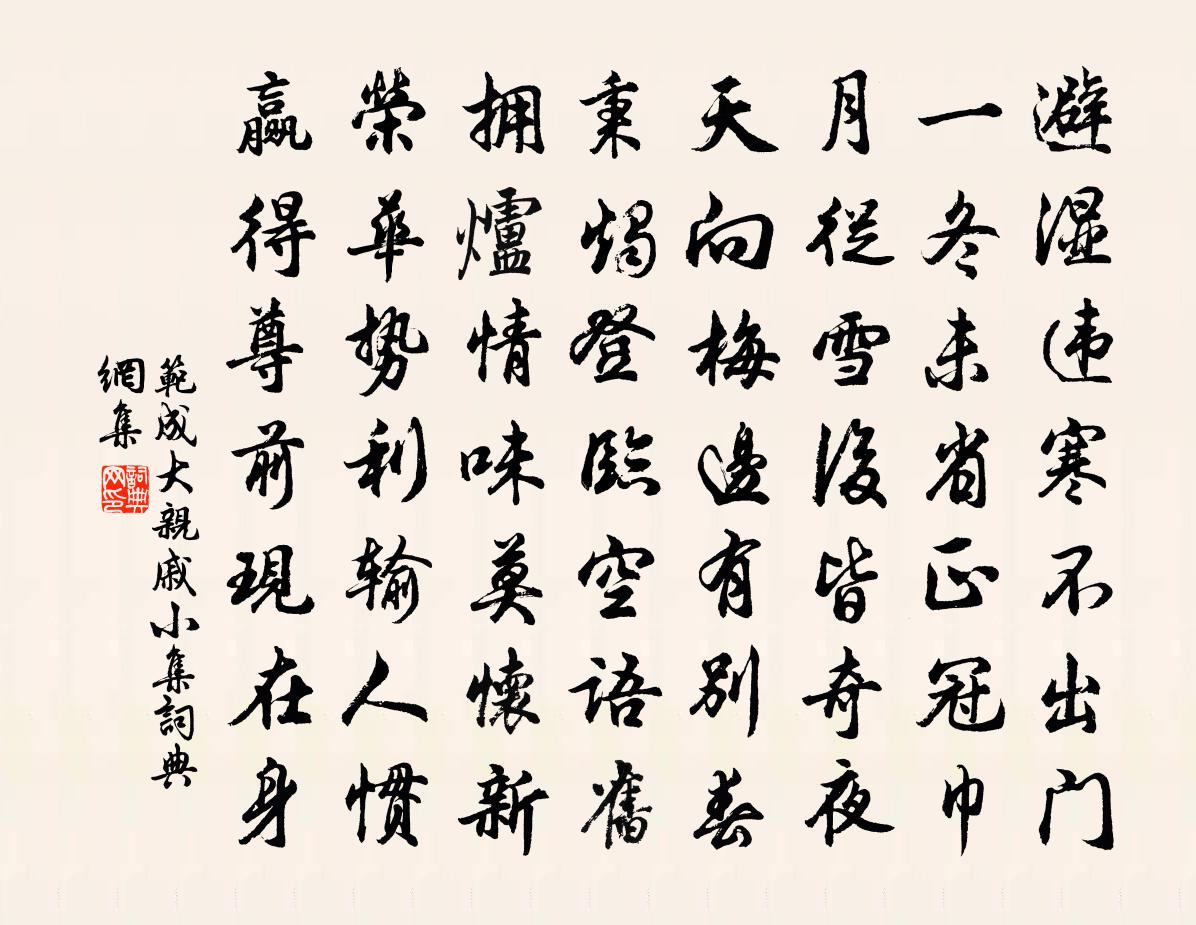 避湿违寒不出门
一冬未省正冠巾
月從雪後皆奇夜
天向梅邊有别春
秉燭登臨空語舊
拥爐情味莫懷新
榮華势利输人惯
贏得尊前現在身
範成大親戚小集詞典
網集
詞典
网印